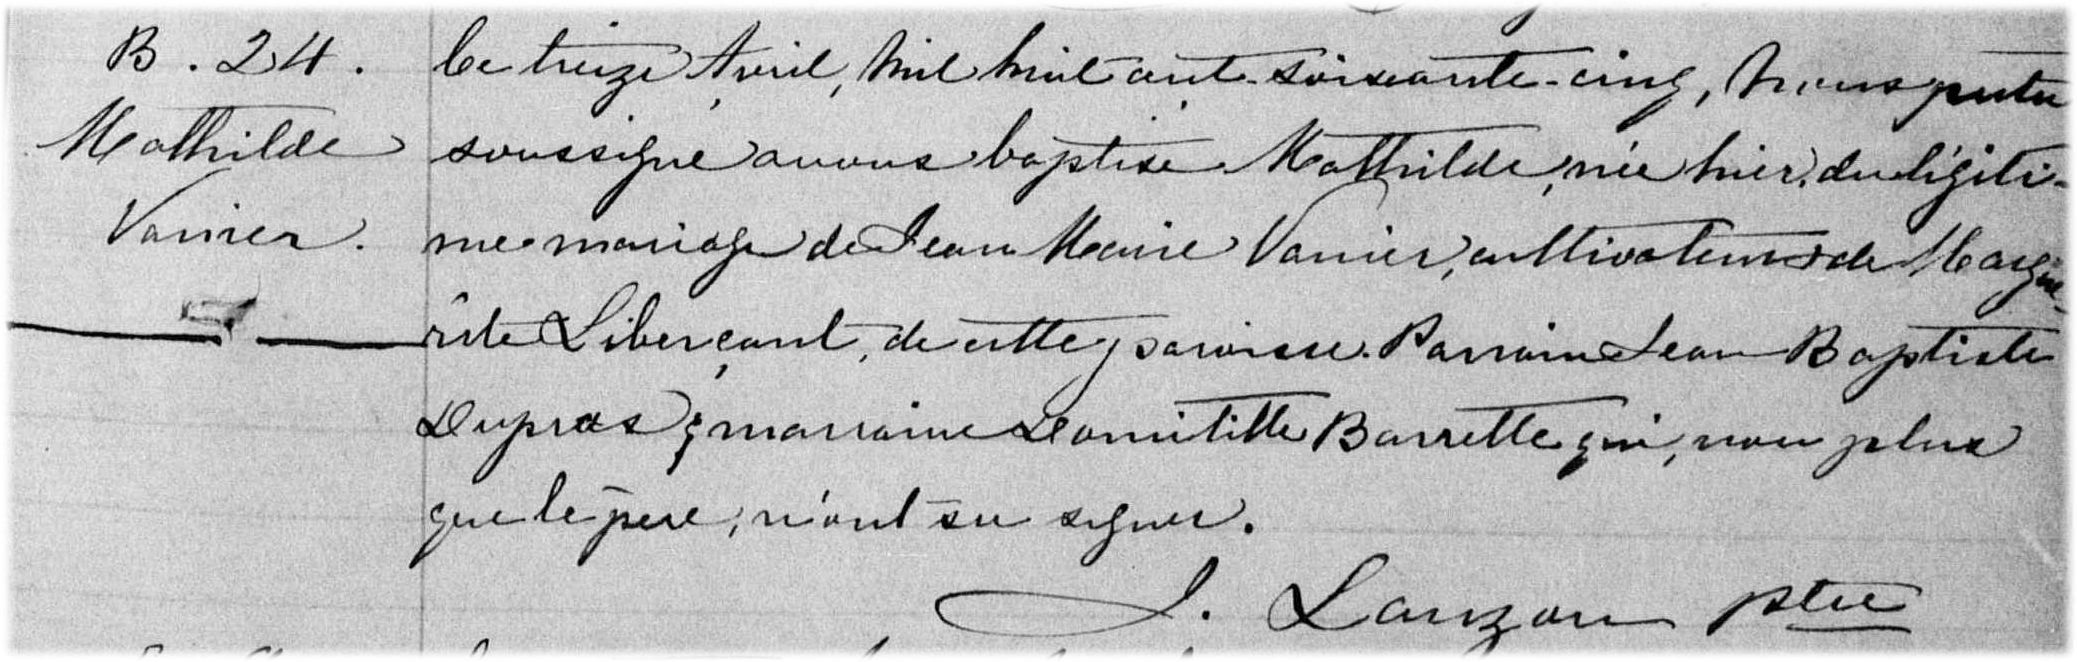 B. 24.
Mathilde
Vanier.
Le treize Avril, mil huit cent-soixante-cinq, Nous prêtre
soussigné avons baptisé Mathilde, née hier, du légiti-
me mariage de Jean Marie Vanier, cultivateur & de Margue-
rite Liberçent, de cette paroisse. Parrain Jean Baptiste
Dupras & marraine Domitille Barrette qui, non plus
que le père, n'ont su signer.
J. Lauzon ptre